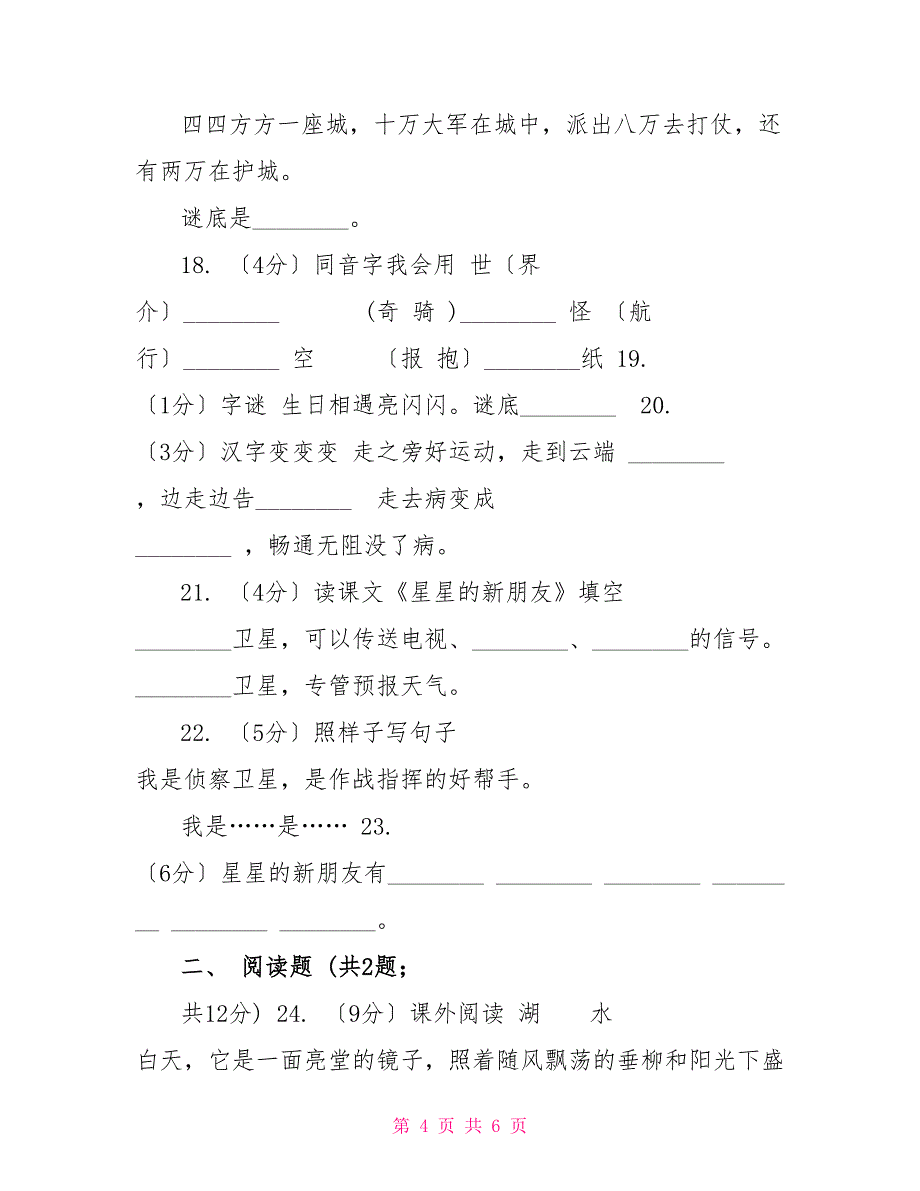 四四方方一座城，十万大军在城中，派出八万去打仗，还
有两万在护城。
谜底是________。
18. 〔4分〕同音字我会用 世〔界
介〕________ (奇 骑 )________ 怪 〔航
行〕________ 空 〔报 抱〕________纸 19.
〔1分〕字谜 生日相遇亮闪闪。谜底________ 20.
〔3分〕汉字变变变 走之旁好运动，走到云端 ________
，边走边告________ 走去病变成
________ ，畅通无阻没了病。
21. 〔4分〕读课文《星星的新朋友》填空
________卫星，可以传送电视、________、________的信号。
________卫星，专管预报天气。
22. 〔5分〕照样子写句子
我是侦察卫星，是作战指挥的好帮手。
我是……是…… 23.
〔6分〕星星的新朋友有________ ________ ________ ______
__ ________ ________。
二、 阅读题 (共2题；
共12分) 24. 〔9分〕课外阅读 湖 水
白天，它是一面亮堂的镜子，照着随风飘荡的垂柳和阳光下盛
第 4 页 共 6 页